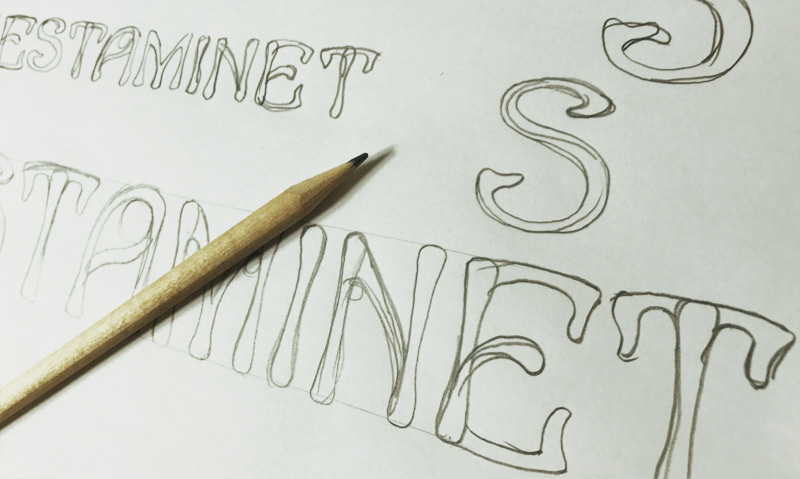 ESTAMINET
S
S
STAMINET